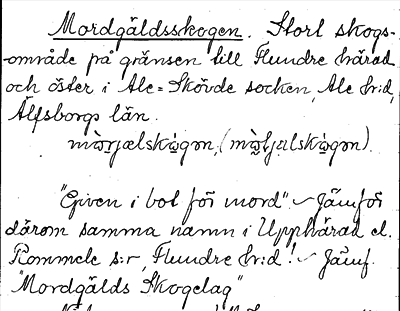 Mordgäldsskogen. Stort skogs-
område på gränsen till Flundre härad
och öster i Ale-Skövde socken, Ale h:d,
Älfsborgs län.
"Given i bot för mord" ~ Jämför
därom samma namn i Upphärad el.
Rommele s:r, Flundre h:d! ~ Jämf.
"Mordgälds Skogelag"